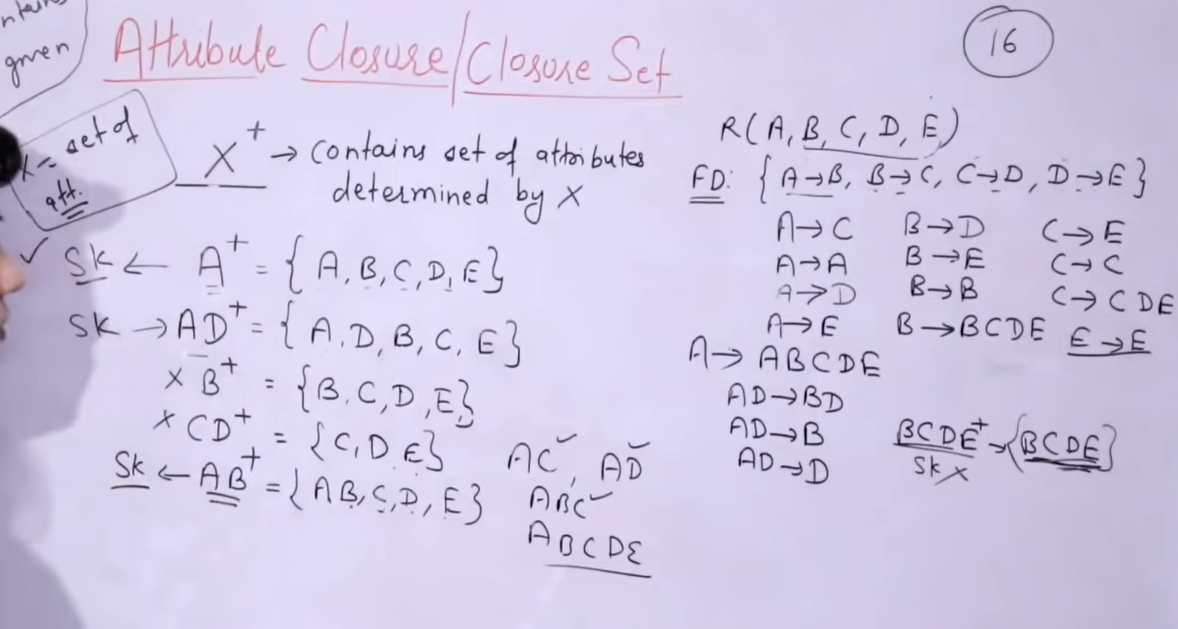 given
Attribute Closure/Closure Set
16
set of
att.
X⁺ → contains set of attributes
determined by X
✓ SK ← A⁺ = { A, B, C, D, E }
SK → AD⁺ = { A, D, B, C, E }
× B⁺ = { B, C, D, E }
× CD⁺ = { C, D E }
SK ← AB⁺ = { AB, C, D, E }
AC ✓, AD ✓
ABC ✓
ABCDE
R(A, B, C, D, E)
FD: { A→B, B→C, C→D, D→E }
A→C B→D C→E
A→A B→E C→C
A→D B→B C→CDE
A→E B→BCDE E→E
A→ABCDE
AD→BD
AD→B BCDE⁺→{BCDE}
AD→D SK ×